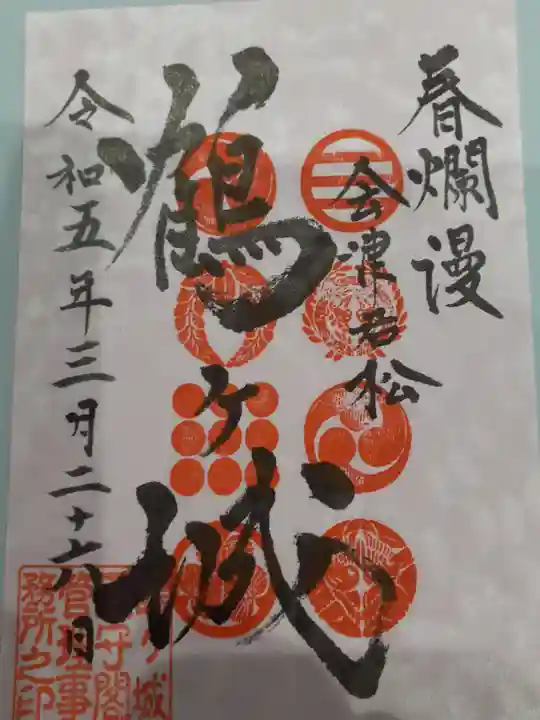 春爛漫
会津若松
鶴ヶ城
令和五年三月二十六日
鶴ヶ城
天守閣
管理事
務所之印